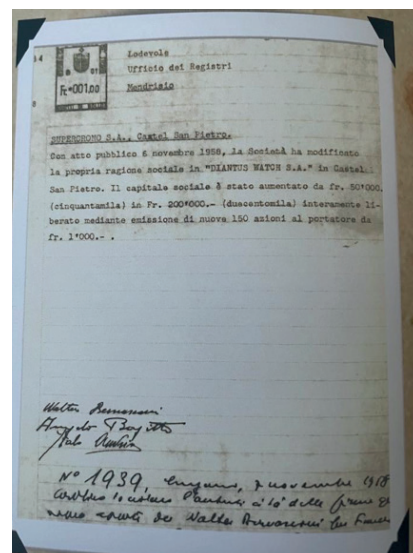 Lodevole
Ufficio dei Registri
Mendrisio
Fr.*001.00
SUPERCRONO S.A., Castel San Pietro.
Con atto pubblico 6 novembre 1958, la Società ha modificato
la propria ragione sociale in "DIANTUS WATCH S.A." in Castel
San Pietro. Il capitale sociale è stato aumentato da fr. 50'000.
(cinquantamila) in Fr. 200'000.- (duecentomila) interamente li-
berato mediante emissione di nuove 150 azioni al portatore da
fr. 1'000.- .
Walter
Angelo
Nº 1939, Lugano, 7 novembre 1958
l'autenticità delle firme
da Walter